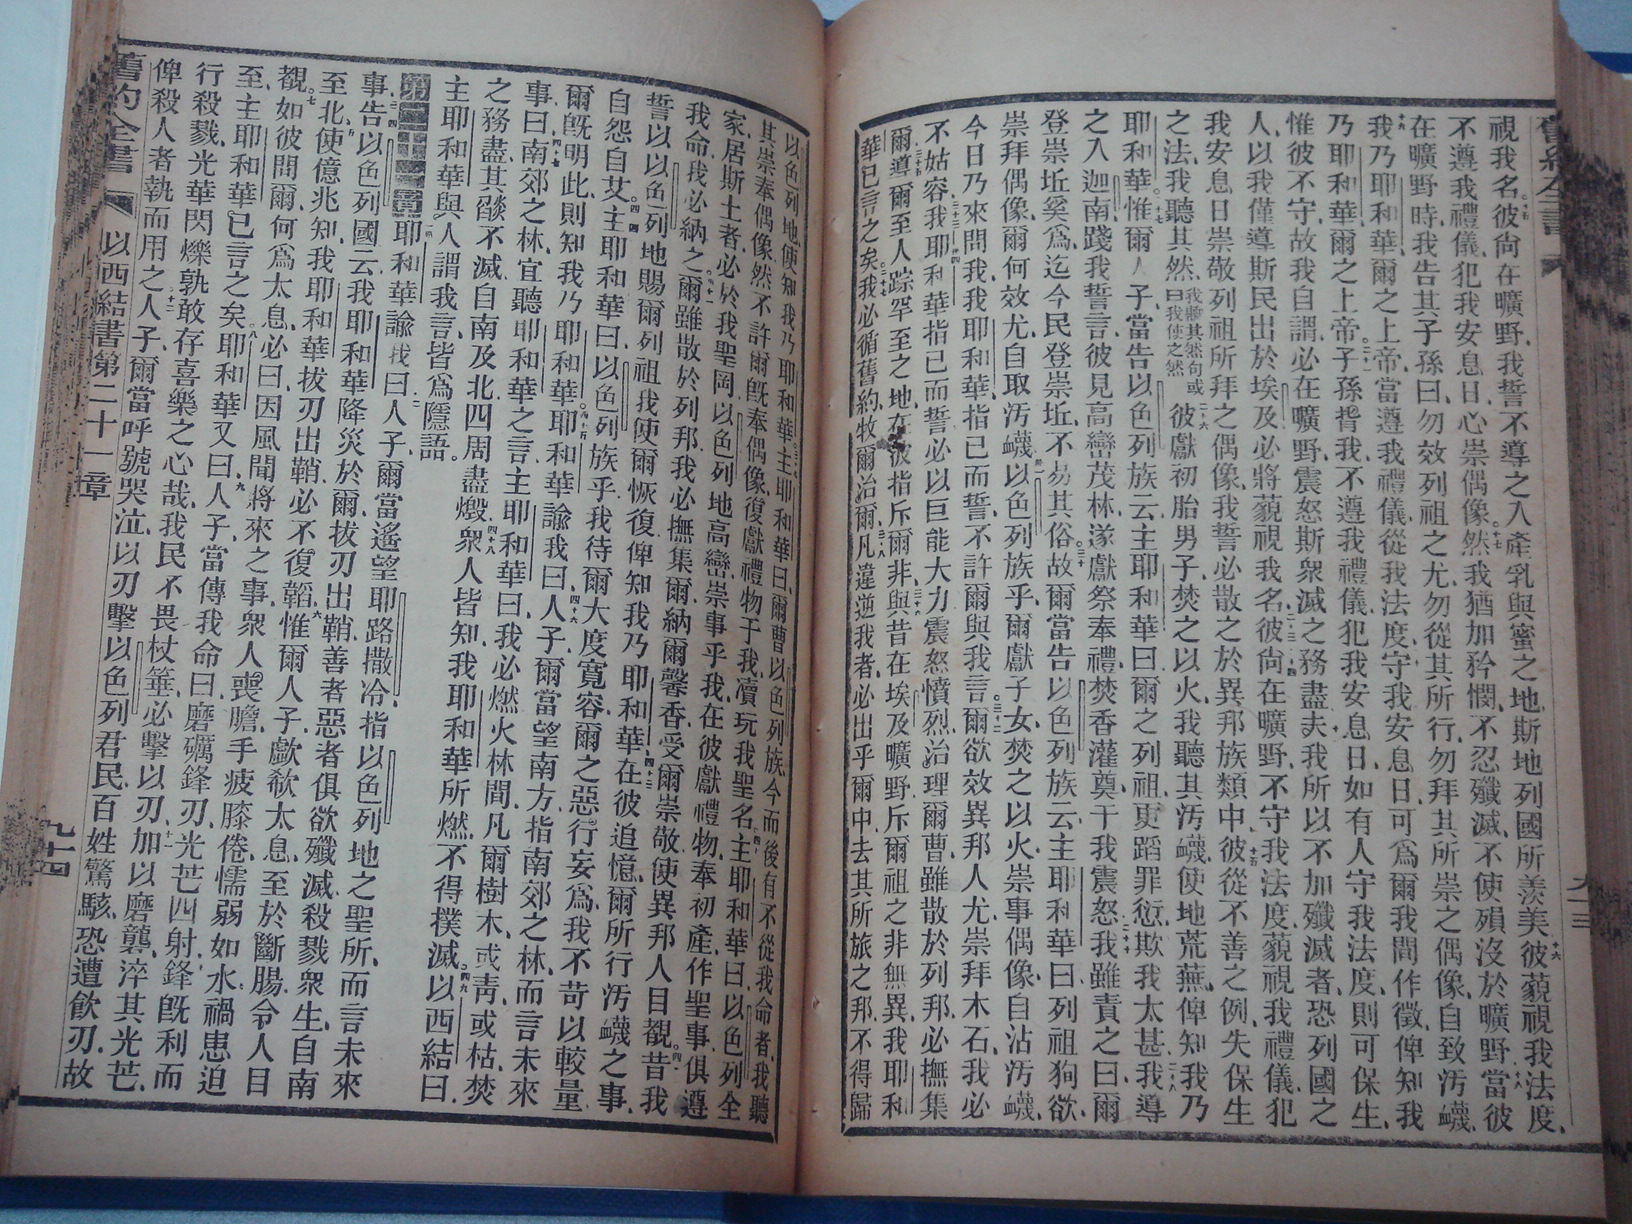 舊約全書
九十三
視我名彼尚在曠野我誓不導之入產乳與蜜之地斯地列國所羨美十六彼藐視我法度
不遵我禮儀犯我安息日心崇偶像十七然我猶加矜憫不忍殲滅不使殞沒於曠野十八當彼
在曠野時我告其子孫曰勿效列祖之尤勿從其所行勿拜其所崇之偶像自致汚衊
十九我乃耶和華爾之上帝當遵我禮儀從我法度守我安息日可為爾我間作徵俾知我
乃耶和華爾之上帝二一子孫背我不遵我禮儀犯我安息日如有人守我法度則可保生
惟彼不守故我自謂必在曠野震怒斯衆滅之務盡夫我所以不加殲滅者恐列國之
人以我僅導斯民出於埃及必將藐視我名彼尚在曠野不守我法度藐視我禮儀犯
我安息日崇敬列祖所拜之偶像我誓必散之於異邦族類中彼從不善之例失保生
之法我聽其然我聽其然句或曰我使之然二十六彼獻初胎男子焚之以火我聽其汚衊使地荒蕪俾知我乃
耶和華二十七惟爾人子當告以色列族云主耶和華曰爾之列祖更蹈罪愆欺我太甚二十八我導
之入迦南踐我誓言彼見高巒茂林遂獻祭奉禮焚香灌奠干我震怒我雖責之曰爾
登崇坵奚為迄今民登崇坵不易其俗三十故爾當告以色列族云主耶和華曰列祖狥欲
崇拜偶像爾何效尤自取汚衊三一以色列族乎爾獻子女焚之以火崇事偶像自沾汚衊
今日乃來問我我耶和華指己而誓不許爾與我言三十二爾欲效異邦人尤崇拜木石我必
不姑容我耶和華指己而誓必以巨能大力震怒憤烈治理爾曹雖散於列邦必撫集
爾導爾至人踪罕至之地在彼指斥爾非三十六與昔在埃及曠野斥爾祖之非無異我耶和
華已言之矣三十七我必循舊約牧爾治爾三十八凡違逆我者必出乎爾中去其所旅之邦不得歸
以色列地使知我乃耶和華主耶和華曰爾曹以色列族今而後有不從我命者我聽
其崇奉偶像然不許爾既奉偶像復獻禮物于我瀆玩我聖名四十主耶和華曰以色列全
家居斯土者必於我聖岡以色列地高巒崇事乎我在彼獻禮物奉初產作聖事俱遵
我命我必納之四十一爾雖散於列邦我必撫集爾納爾馨香受爾崇敬使異邦人目覩昔我
誓以以色列地賜爾列祖我使爾恢復俾知我乃耶和華四十三在彼追憶爾所行汚衊之事
自怨自艾四四主耶和華曰以色列族乎我待爾大度寬容爾之惡行妄為我不苛以較量
爾既明此則知我乃耶和華四十五耶和華諭我曰四十六人子爾當望南方指南郊之林而言未來
事曰四十七南郊之林宜聽耶和華之言主耶和華曰我必燃火林間凡爾樹木或青或枯焚
之務盡其燄不滅自南及北四周盡燬四十八衆人皆知我耶和華所燃不得撲滅四九以西結曰
主耶和華與人謂我言皆為隱語
第二十一章一耶和華諭我曰二人子爾當遙望耶路撒冷指以色列地之聖所而言未來
事三告以色列國云我耶和華降災於爾拔刃出鞘善者惡者俱欲殲滅四殺戮衆生自南
至北五使億兆知我耶和華拔刃出鞘必不復韜六惟爾人子歔欷太息至於斷腸令人目
覩七如彼問爾何為太息必曰因風聞將來之事衆人喪膽手疲膝倦懦弱如水禍患迫
至主耶和華已言之矣八耶和華又曰九人子當傳我命曰磨礪鋒刃十光芒四射鋒既利而
行殺戮光華閃爍孰敢存喜樂之心哉我民不畏杖箠必擊以刃加以磨礲淬其光芒
俾殺人者執而用之十二人子爾當呼號哭泣以刃擊以色列君民百姓驚駭恐遭飲刃故
舊約全書
以西結書第二十一章
九十四